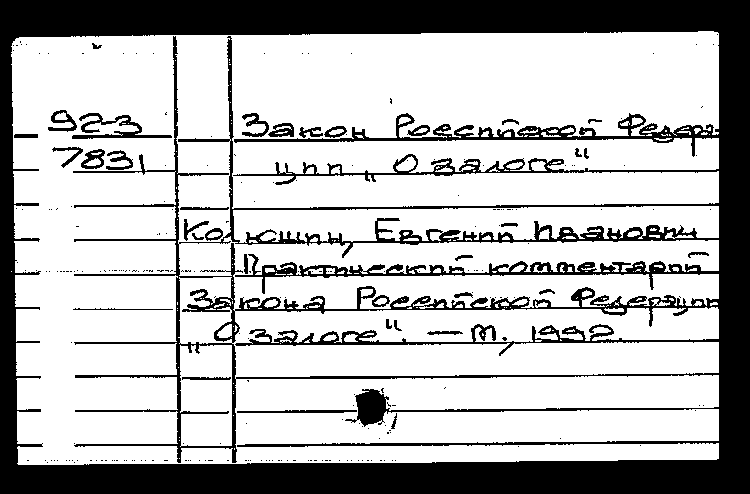 92-3 Закон Российской Федера-
7831 ции „О залоге“.
Колюшин, Евгений Иванович
Практический комментарий
Закона Российской Федерации
„О залоге“. — М., 1992.